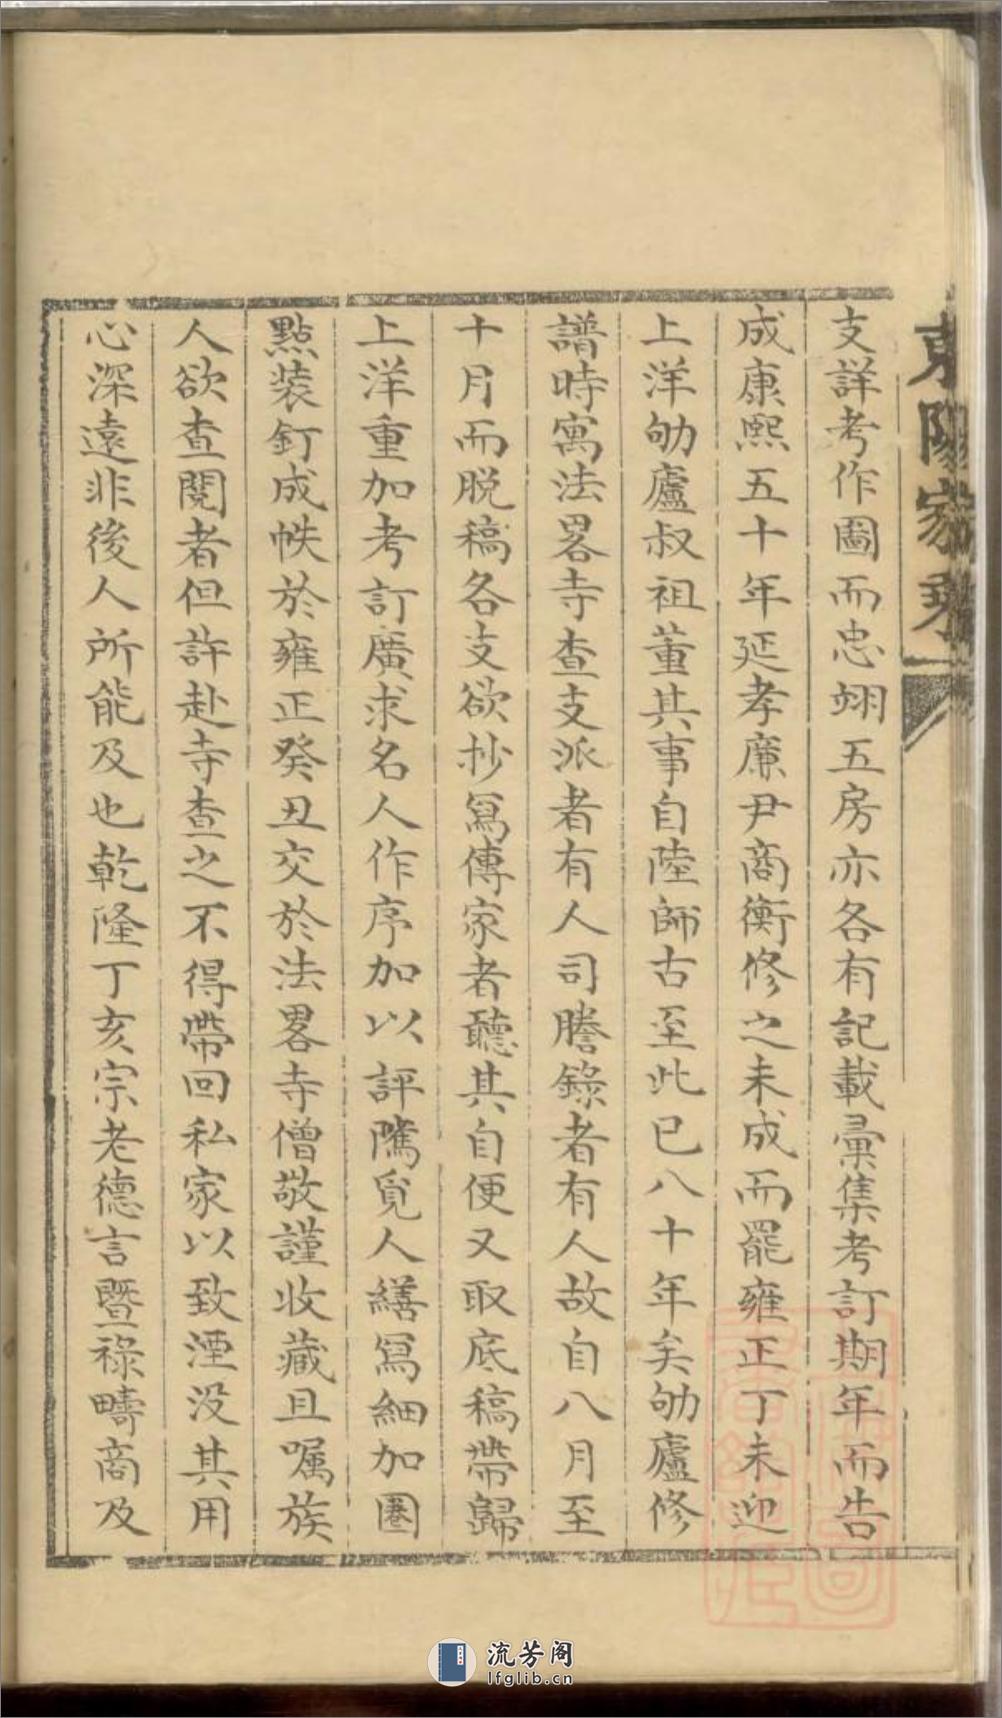 東陽家乘
支詳考作圖而忠翊五房亦各有記載彙集考訂期年而告
成康熙五十年延孝廉尹商衡修之未成而罷雍正丁未迎
上洋劬廬叔祖董其事自陸師古至此已八十年矣劬廬修
譜時寓法畧寺查支派者有人司謄錄者有人故自八月至
十月而脱稿各支欲抄寫傳家者聽其自便又取底稿帶歸
上洋重加考訂廣求名人作序加以評隲覓人繕寫細加圏
點装釘成帙於雍正癸丑交於法畧寺僧敬謹收藏且嘱族
人欲查閱者但許赴寺查之不得帶回私家以致湮没其用
心深遠非後人所能及也乾隆丁亥宗老德言暨祿疇商及
流芳阁
lfglib.cn